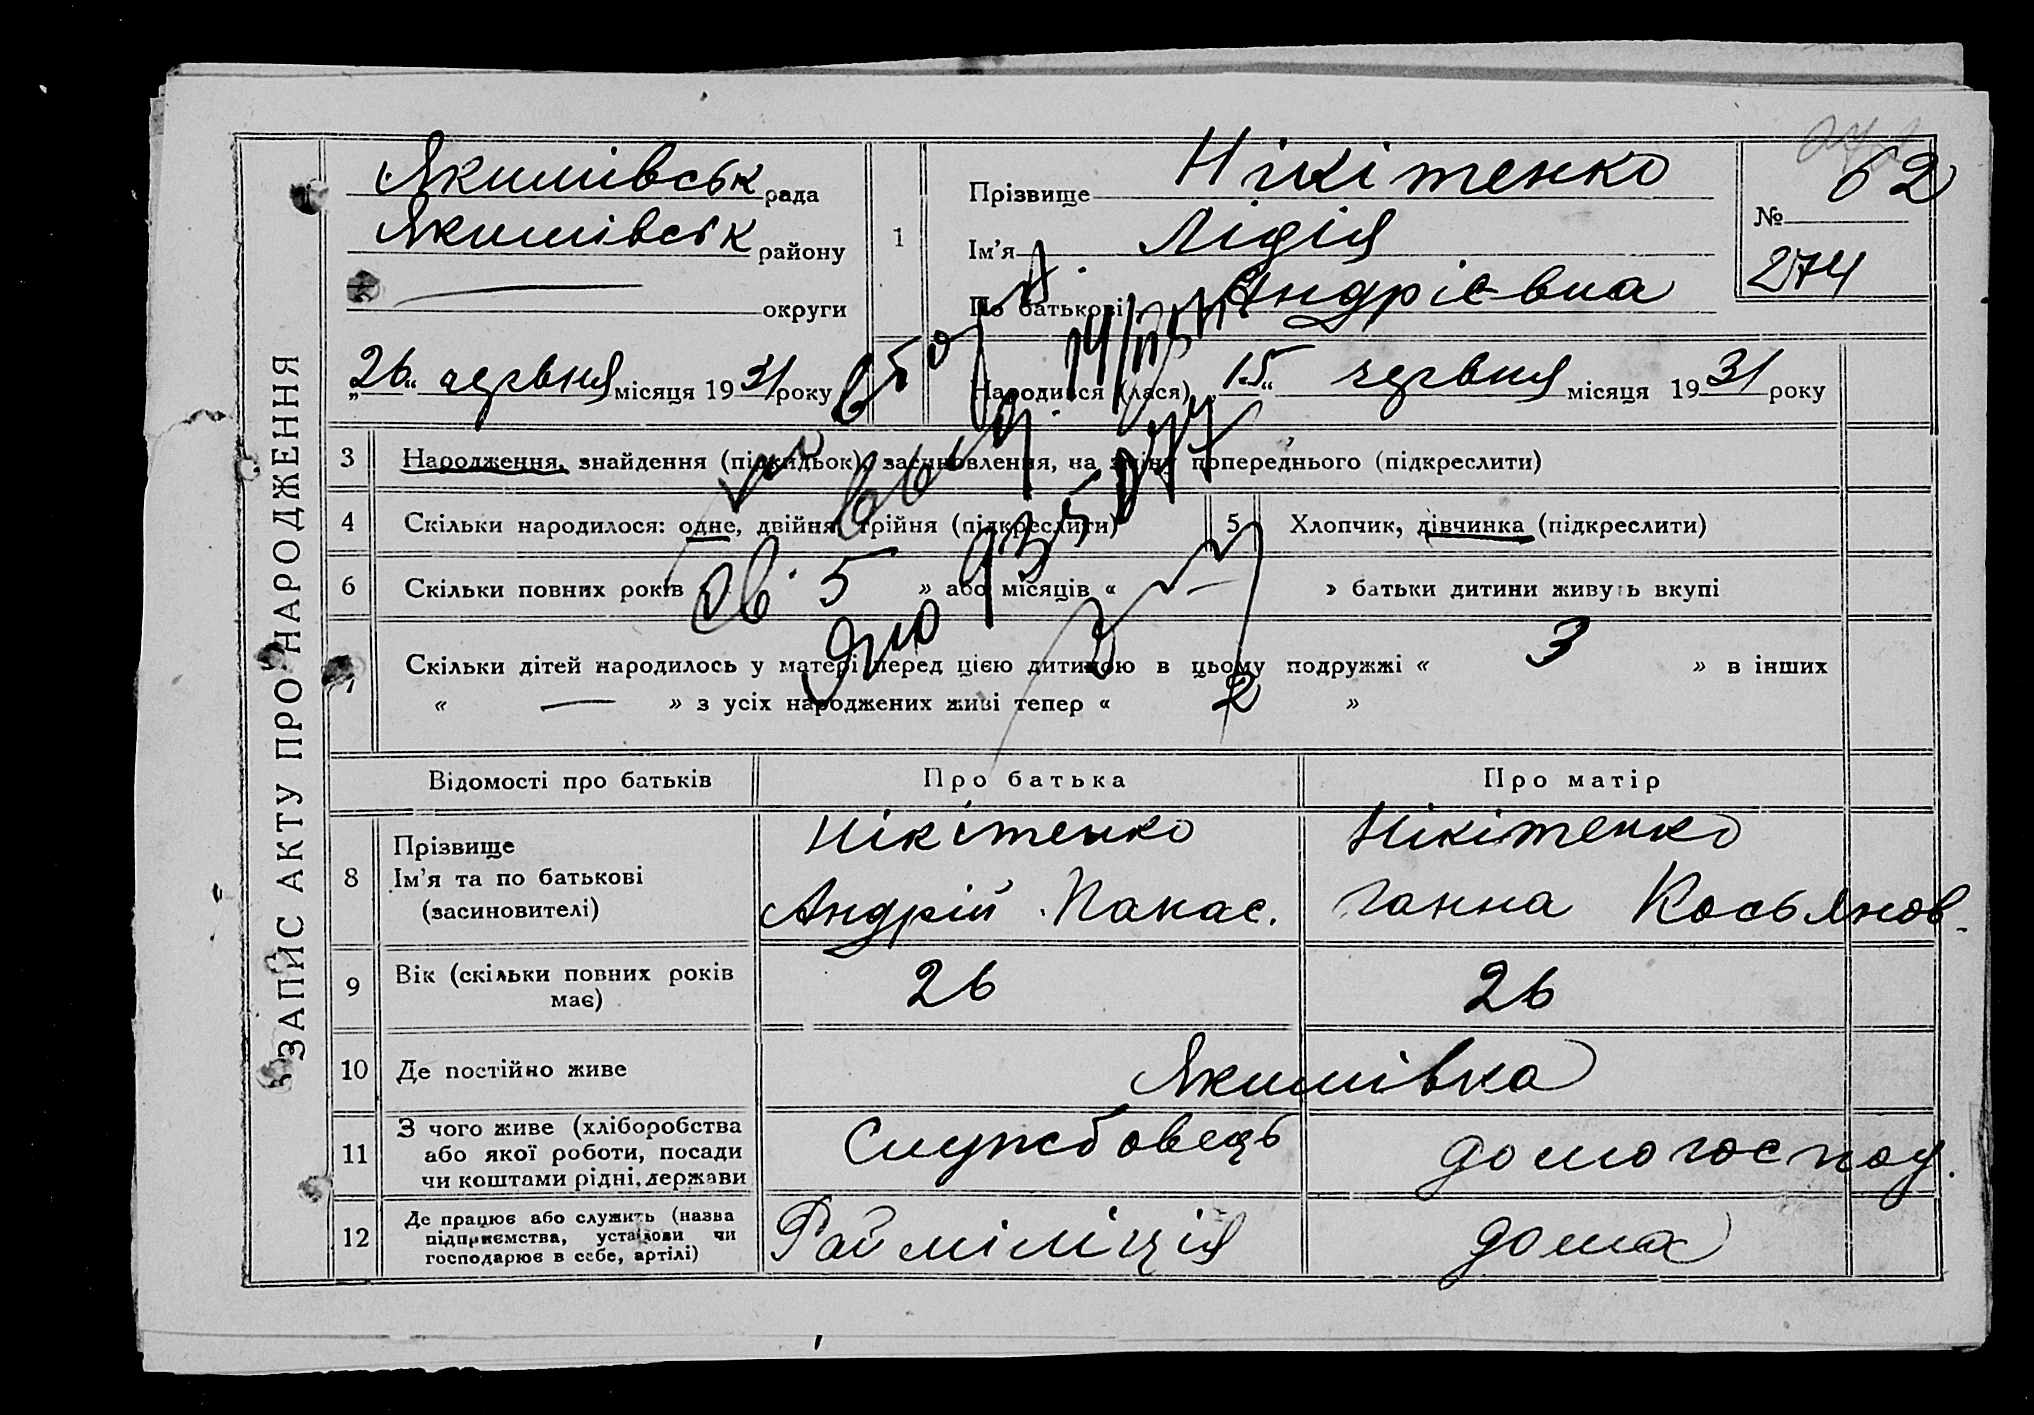 ЗАПИС АКТУ ПРО НАРОДЖЕННЯ
Якимівськ рада
Якимівськ району
— округи
„26“ червня місяця 1931 року
1
Прізвище Нікітенко
Ім'я Лідія
По батькові Андрієвна
№ 62
274
Народився (лася) „15“ червня місяця 1931 року
3 Народження, знайдення (підкидьок), засиновлення, на зміну попереднього (підкреслити)
4 Скільки народилося: одне, двійня, трійня (підкреслити)
5 Хлопчик, дівчинка (підкреслити)
6 Скільки повних років 5 » або місяців « — » батьки дитини живуть вкупі
7 Скільки дітей народилось у матері перед цією дитиною в цьому подружжі « 3 » в інших
« — » з усіх народжених живі тепер « 2 »
Відомості про батьків Про батька Про матір
8 Прізвище
Ім'я та по батькові
(засиновителі)
Нікітенко
Андрій Панас.
Нікітенко
Ганна Косьянов
9 Вік (скільки повних років
має)
26 26
10 Де постійно живе Якимівка
11 З чого живе (хліборобства
або якої роботи, посади
чи коштами рідні, держави
Службовець домогоспод.
12 Де працює або служить (назва
підприємства, установи чи
господарює в себе, артілі)
Райміліція дома